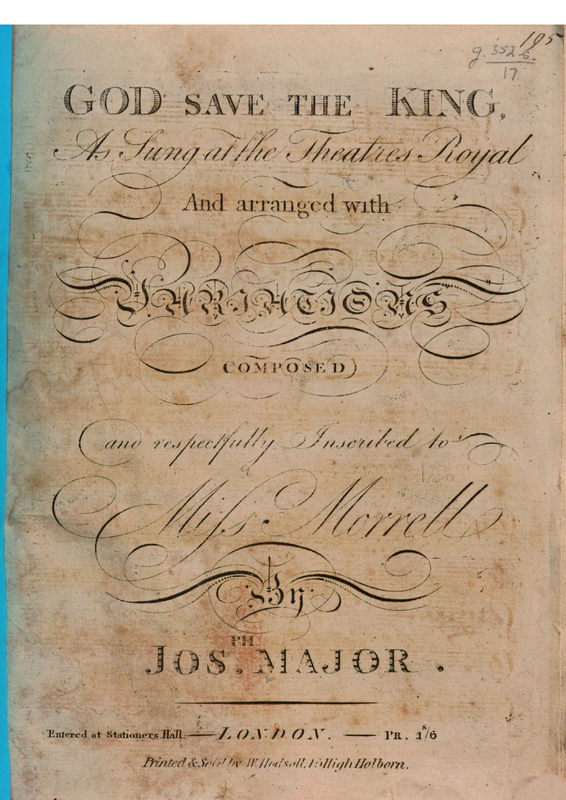 195
g. 352.b.
17
GOD SAVE THE KING,
As Sung at the Theatres Royal
And arranged with
VARIATIONS
COMPOSED
and respectfully Inscribed to
Miſs. Morrell
By
JOSPH. MAJOR.
Entered at Stationers Hall. — LONDON. — PR. 1s/6
Printed & Sold by W. Hodsoll, 45 High Holborn.